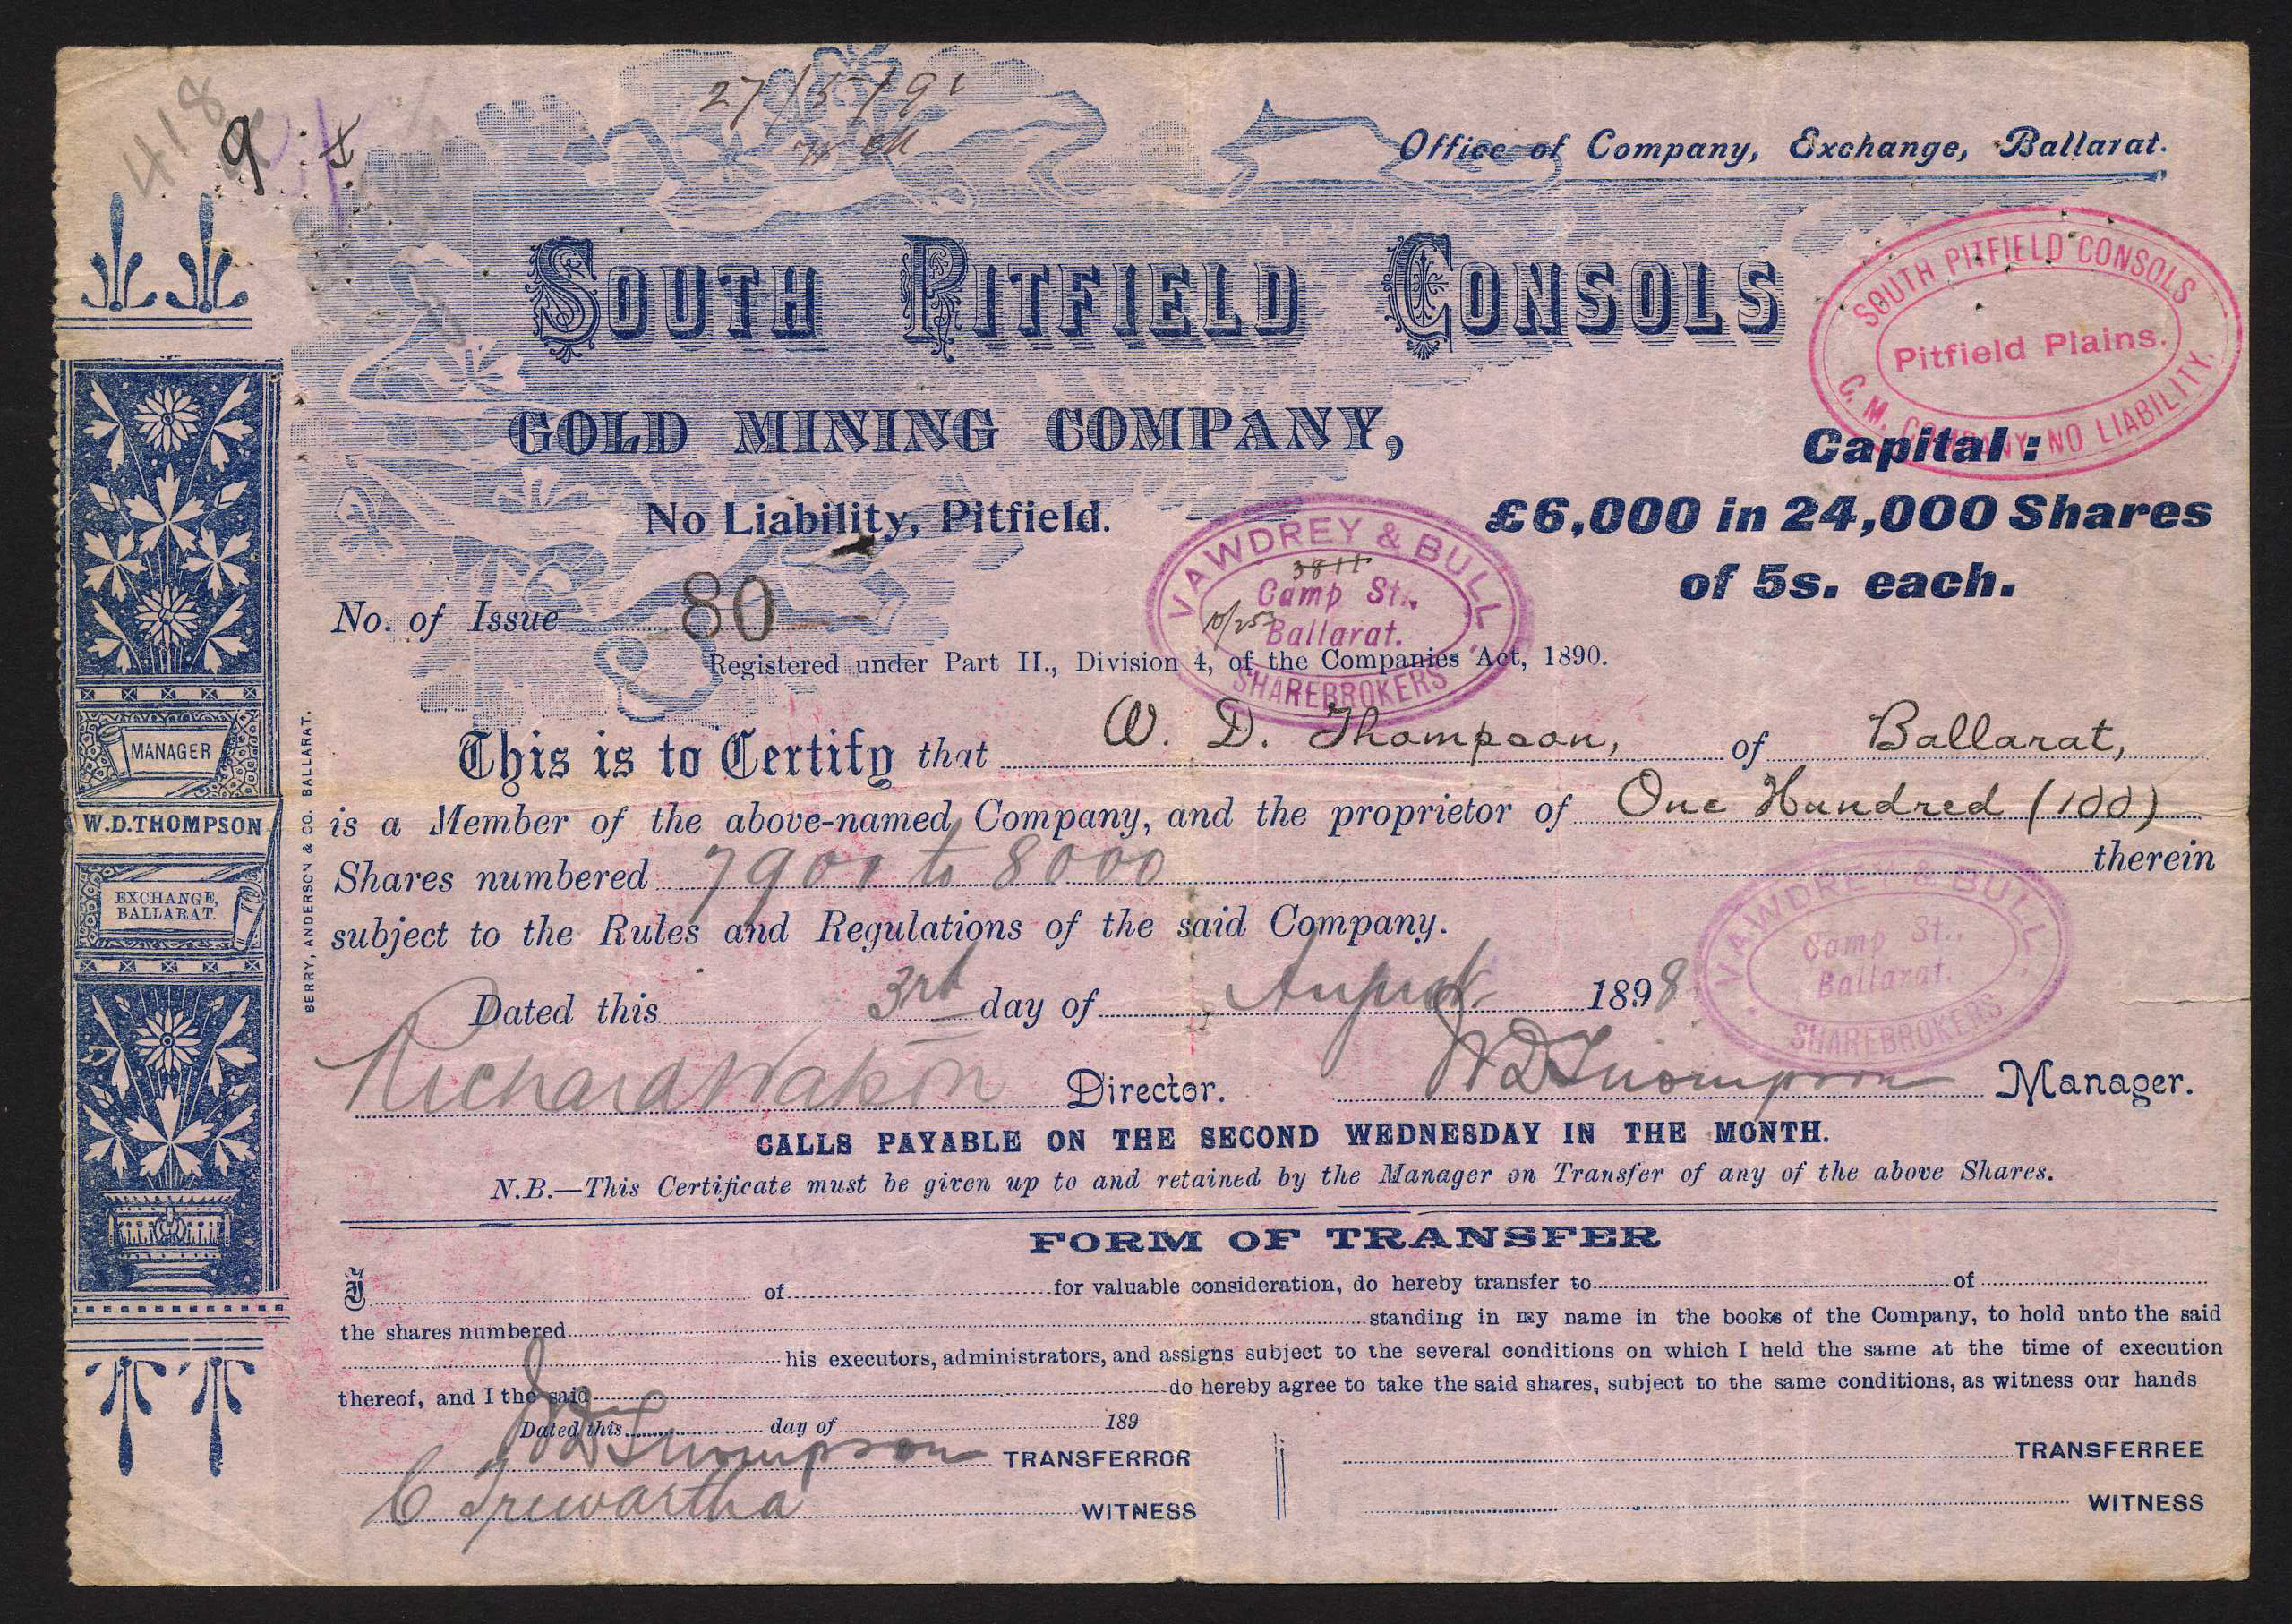 418
9
27/5/9
Office of Company, Exchange, Ballarat.
SOUTH PITFIELD CONSOLS
SOUTH PITFIELD CONSOLS
Pitfield Plains.
G. M. COMPANY NO LIABILITY.
GOLD MINING COMPANY,
Capital:
No Liability, Pitfield.
£6,000 in 24,000 Shares
of 5s. each.
VAWDREY & BULL
3811
Camp St.,
10/253
Ballarat.
SHAREBROKERS
No. of Issue 80
Registered under Part II., Division 4, of the Companies Act, 1890.
This is to Certify that W. D. Thompson, of Ballarat,
is a Member of the above-named Company, and the proprietor of One Hundred (100)
Shares numbered 7901 to 8000 therein
subject to the Rules and Regulations of the said Company.
VAWDREY & BULL
Camp St.,
Ballarat.
SHAREBROKERS
Dated this 3rd day of August 1898
Richard Watson Director. W D Thompson Manager.
CALLS PAYABLE ON THE SECOND WEDNESDAY IN THE MONTH.
N.B.—This Certificate must be given up to and retained by the Manager on Transfer of any of the above Shares.
MANAGER
W.D.THOMPSON
EXCHANGE,
BALLARAT.
BERRY, ANDERSON & CO. BALLARAT.
FORM OF TRANSFER
I of for valuable consideration, do hereby transfer to of
the shares numbered standing in my name in the books of the Company, to hold unto the said
his executors, administrators, and assigns subject to the several conditions on which I held the same at the time of execution
thereof, and I the said do hereby agree to take the said shares, subject to the same conditions, as witness our hands
Dated this day of 189
W D Thompson TRANSFERROR TRANSFERREE
C Trewartha WITNESS WITNESS